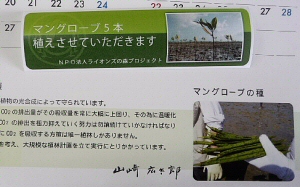 27
28
27
28
マングローブ5本
植えさせていただきます
NPO法人ライオンズの森プロジェクト
植物の光合成によって守られています。
CO2の排出量がその吸収量を常に大幅に上回り、その為に温暖化
CO2の排出を極力抑えていく努力は勿論続けていかなければなり
にCO2を吸収する方策は唯一植林しかありません。
を考え、大規模な植林計画を立て実行にとりかかっています。
マングローブの種